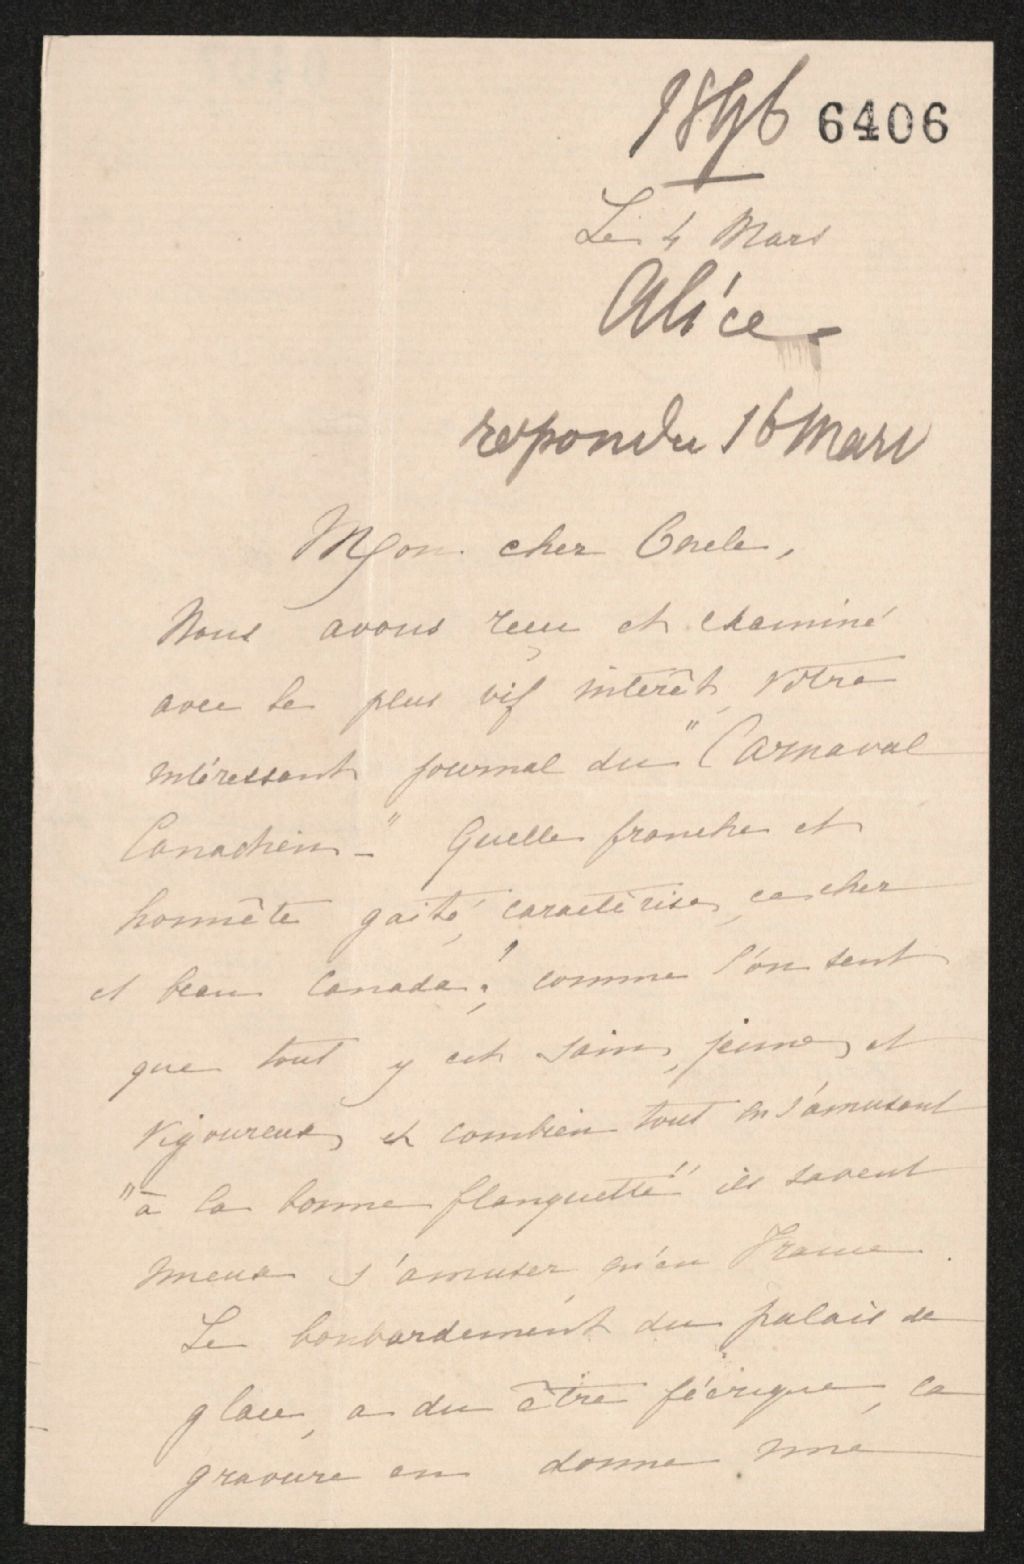 1896 6406
Le 4 Mars
Alice
repondu 16 Mars
Mon cher Oncle,
Nous avons reçu et examiné
avec le plus vif intérêt, votre
intéressant journal du "Carnaval
Canadien" - Quelle franche et
honnête gaité, caractérise, ce cher
et beau Canada! comme l'on sent
que tout y est sain, jeune, et
vigoureux, et combien tout en s'amusant
"à la bonne flanquette" ils savent
mieux s'amuser, qu'en France.
Le bonbardement du palais de
glace, a du être féérique, la
gravure en donne une